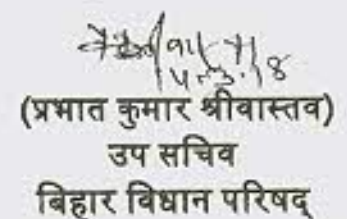 14.3.18
(प्रभात कुमार श्रीवास्तव)
उप सचिव
बिहार विधान परिषद्